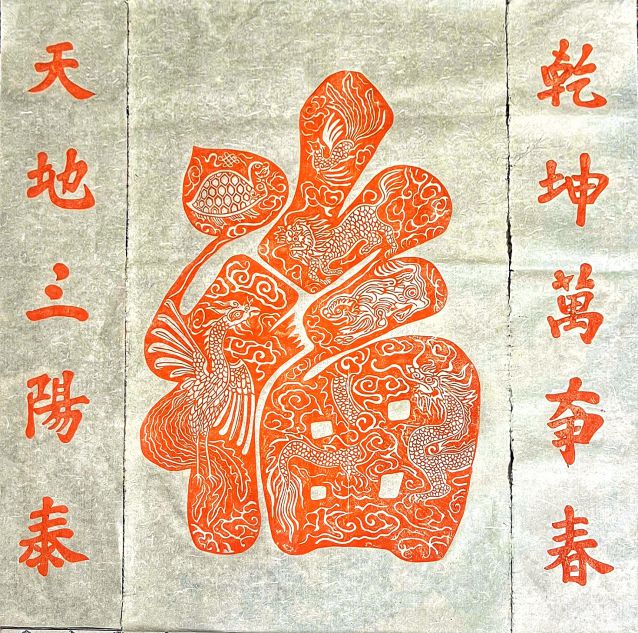 乾坤萬事春
福
天地三陽泰